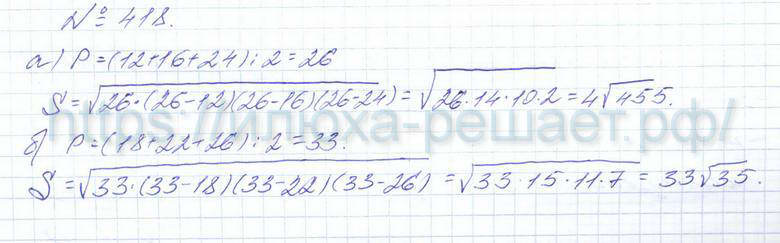 № 418.
а) P=(12+16+24):2=26
S=√26·(26-12)(26-16)(26-24)=√26·14·10·2=4√455.
https://илюха-решает.рф/
б) P=(18+22+26):2=33.
S=√33·(33-18)(33-22)(33-26)=√33·15·11·7=33√35.